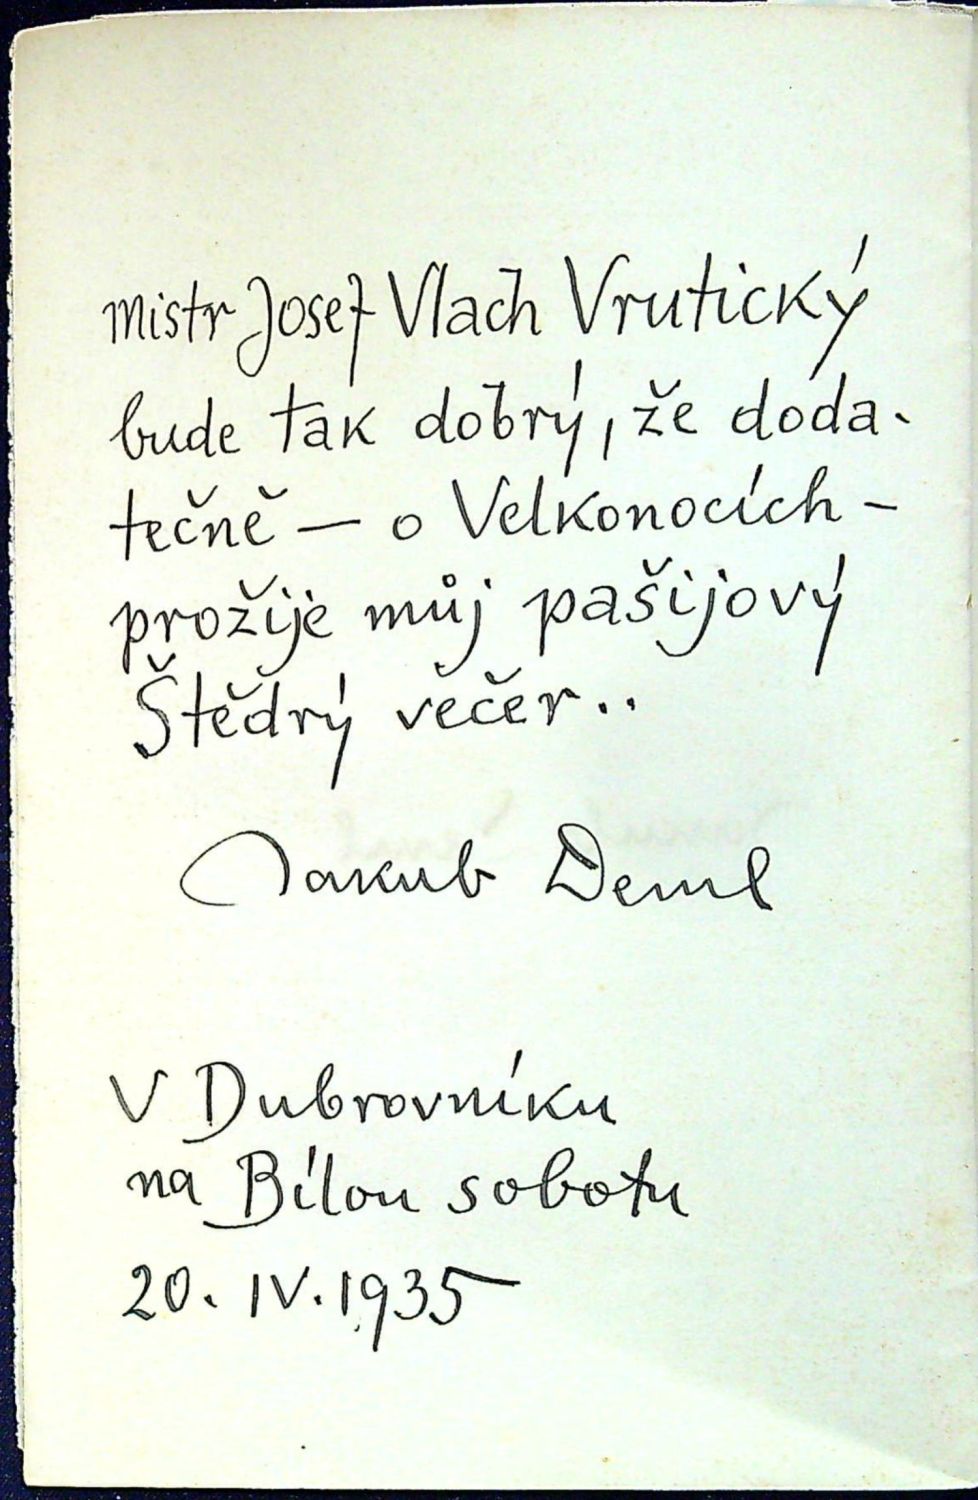 Mistr Josef Vlach Vrutický
bude tak dobrý, že doda-
tečně — o Velkonocích -
prožije můj pašijový
Štědrý večer..
Jakub Deml
V Dubrovníku
na Bílou sobotu
20. IV. 1935